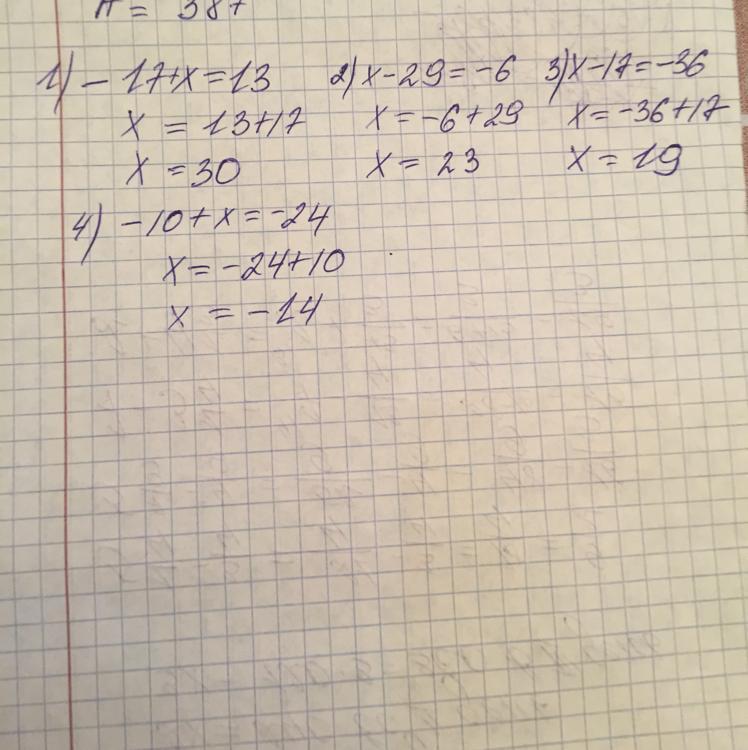 = 387
1) -17+x=13 2) x-29=-6 3) x-17=-36
x = 13+17 x=-6+29 x=-36+17
x = 30 x = 23 x = 19
4) -10+x=-24
x=-24+10
x = -14